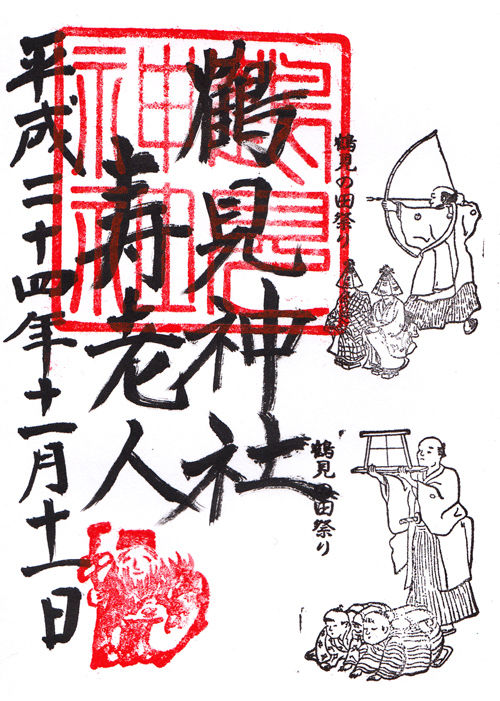 鶴見の田祭り
鶴見の田祭り
鶴見神社
寿老人
平成二十四年十一月十一日
鶴見神社